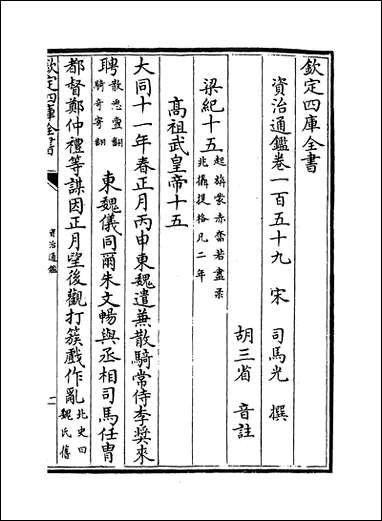 欽定四庫全書
資治通鑑卷一百五十九 宋 司馬光 撰
胡三省 音註
梁紀十五起旃蒙赤奮若盡柔兆攝提格凡二年
高祖武皇帝十五
大同十一年春正月丙申東魏遣兼散騎常侍李奬來
聘散悉亶翻騎奇寄翻 東魏儀同爾朱文暢與丞相司馬任胄
都督鄭仲禮等謀因正月望夜觀打簇戲作亂北史曰魏氏舊
欽定四庫全書
資治通鑑
一